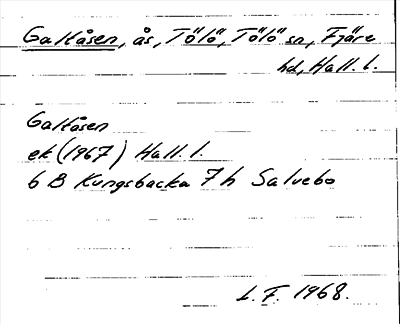 Galtåsen, ås, Tölö, Tölö sn, Fjäre
hd, Hall. l.
Galtåsen
ek (1967) Hall. l.
6 B Kungsbacka 7 h Salvebo
L. F. 1968.